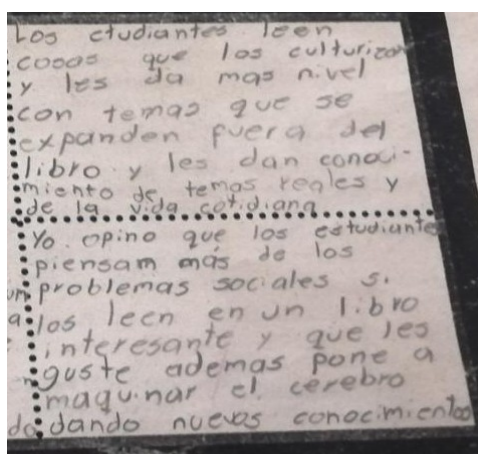 Los ctudiantes leen
cosas que los culturizan
y les da mas nivel
con temas que se
expanden fuera del
libro y les dan conoci-
miento de temas reales y
de la vida cotidiana
Yo opino que los estudiantes
piensam más de los
problemas sociales si
los leen en un libro
interesante y que les
guste ademas pone a
maquinar el cerebro
dando nuevos conocimientos